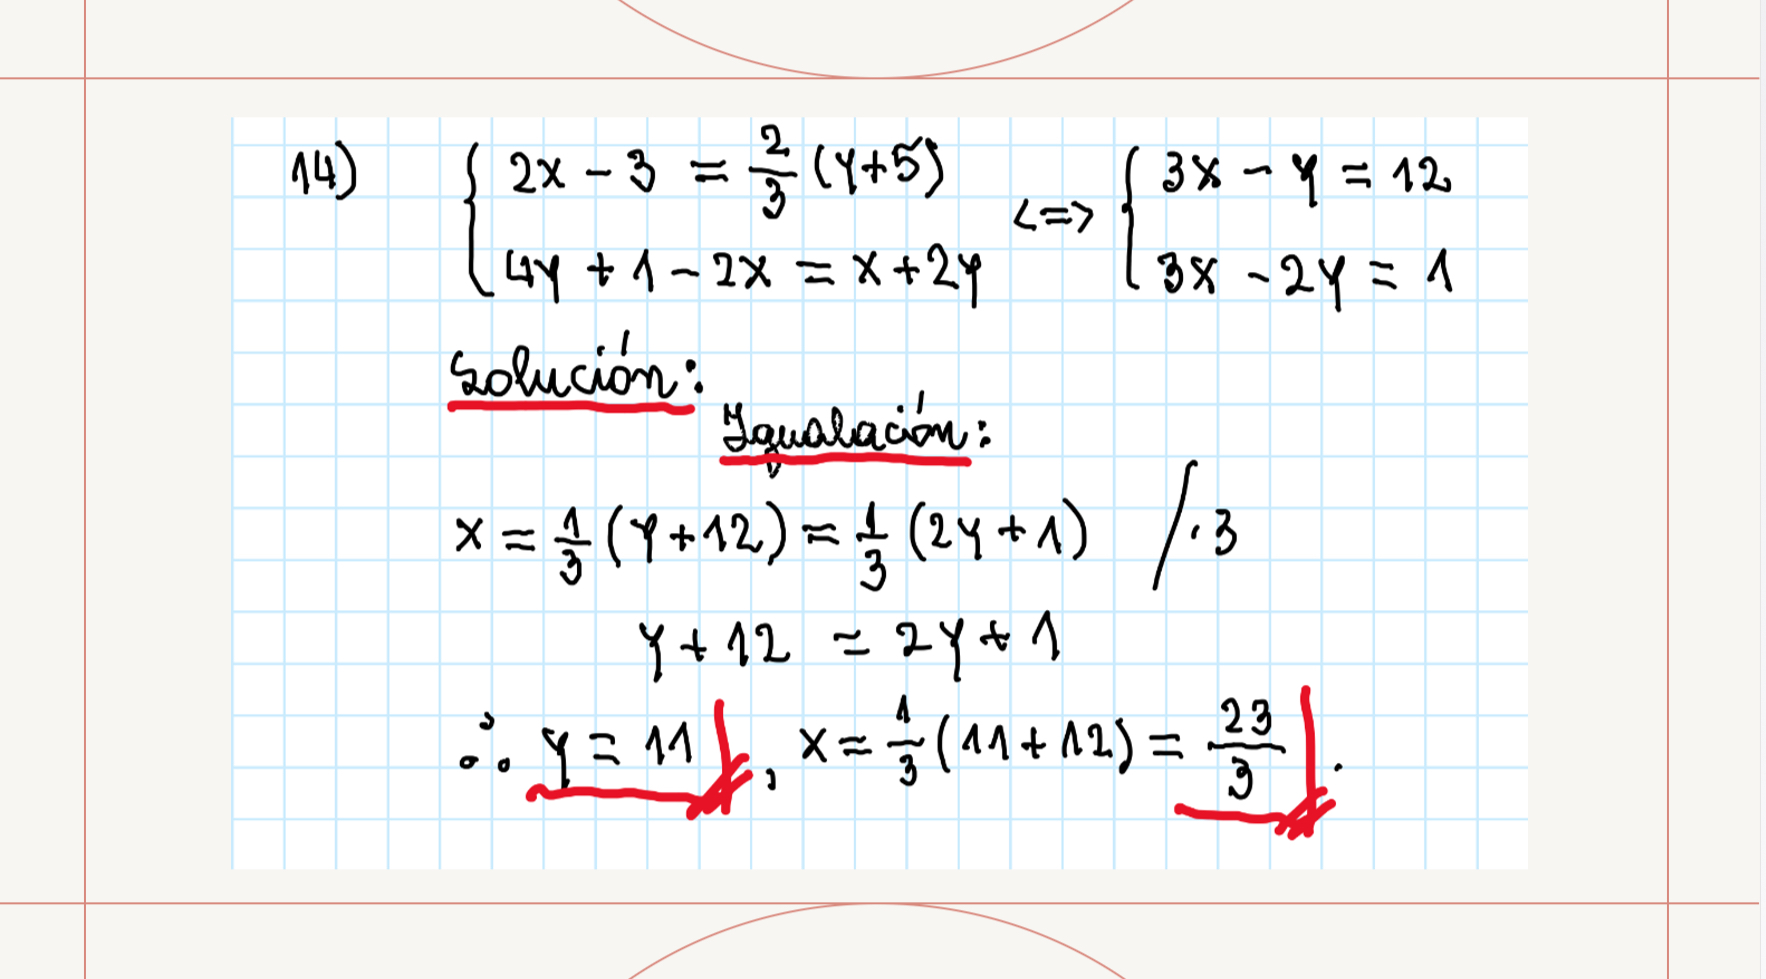 14) { 2x - 3 = 2/3 (y+5) <=> { 3x - y = 12
4y + 1 - 2x = x + 2y 3x - 2y = 1
Solución:
Igualación:
x = 1/3 (y+12) = 1/3 (2y+1) /·3
y + 12 = 2y + 1
∴ y = 11, x = 1/3 (11+12) = 23/3.